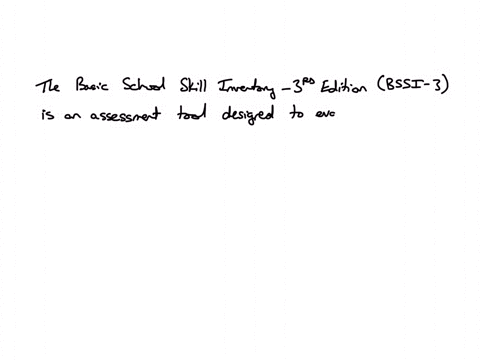 The Basic School Skill Inventory - 3RD Edition (BSSI-3)
is an assessment tool designed to eva